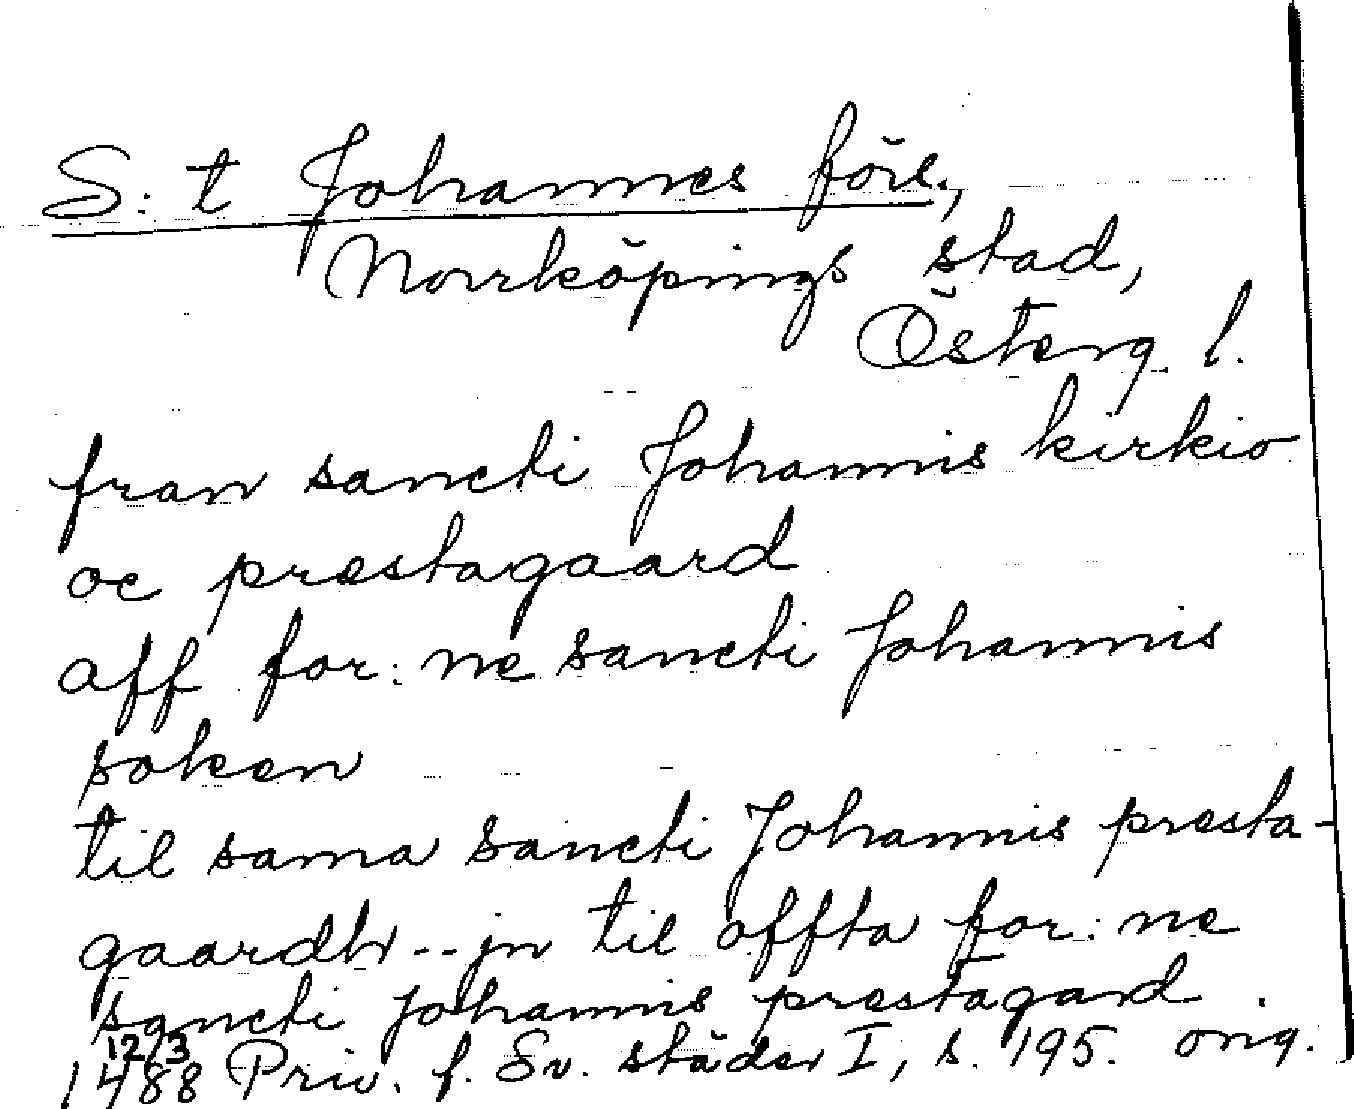 S:t Johannes förs.,
Norrköpings stad,
Österg. l.
fran sancti Johannis kirkio
oc præstagaard
aff for:ne sancti Johannis
soken
til sama sancti Johannis præsta-
gaardh -- jn til offta for:ne
sancti Johannis præstagard.
12/3
1488 Priv. f. Sv. städer I, s. 195. orig.